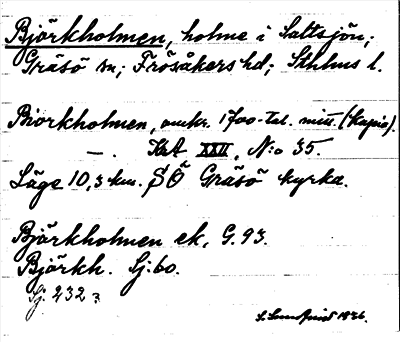 Björkholmen, holme i Saltsjön;
Gräsö sn; Frösåkers hd; Sthlms l.
Biorkholmen, omkr. 1700-tal. mitt. (Kopia).
—. Kat XXII, N:o 35.
Läge 10,3 km. SÖ Gräsö kyrka.
Björkholmen ek, G. 93.
Björkh. Sj: 60.
Sj. 232
1926.